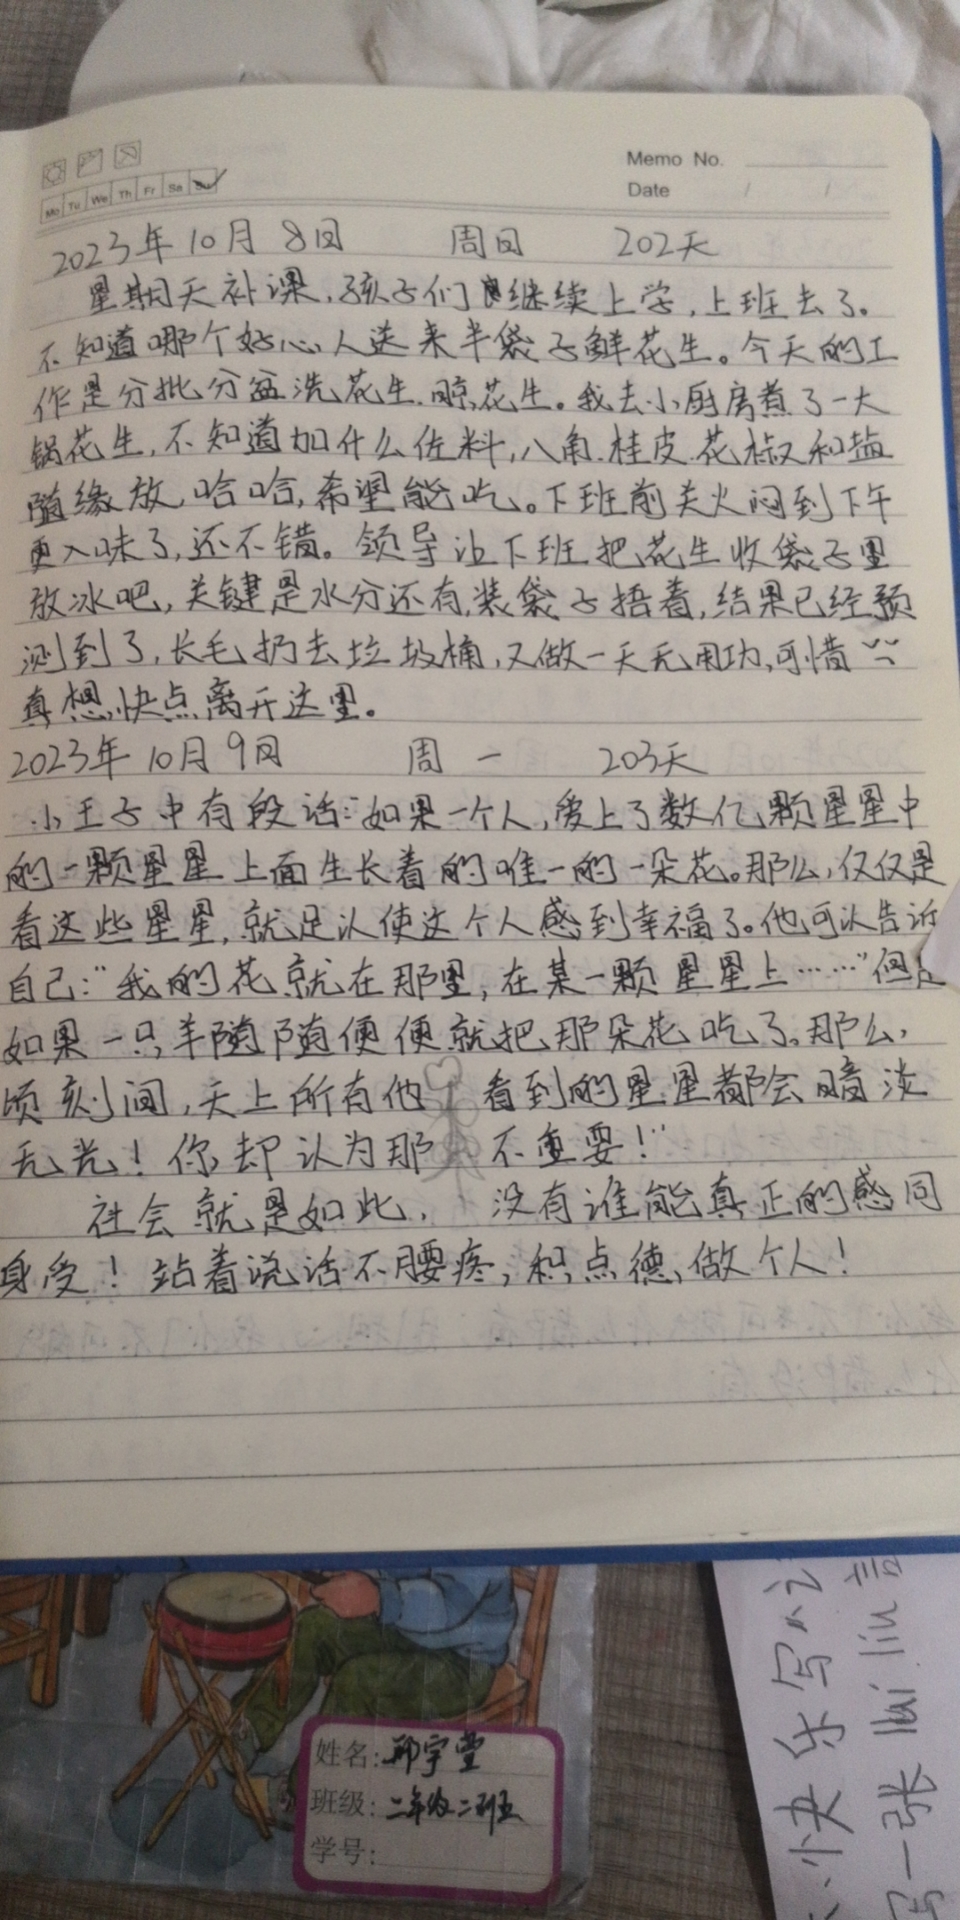 Memo No.
Date / /
Mo Tu We Th Fr Sa Su
2023年10月8日 周日 202天
星期天补课,孩子们继续上学,上班去了。
不知道哪个好心人送来半袋子鲜花生。今天的工
作是分批分盆洗花生.晾花生。我去小厨房煮了一大
锅花生,不知道加什么佐料,八角.桂皮.花椒和盐
随缘放,哈哈,希望能吃。下班前关火闷到下午
更入味了,还不错。领导让下班把花生收袋子里
放冰吧,关键是水分还有,装袋子捂着,结果已经预
测到了,长毛扔去垃圾桶,又做一天无用功,可惜
真想快点离开这里。
2023年10月9日 周一 203天
小王子中有段话:"如果一个人,爱上了数亿颗星星中
的一颗星星上面生长着的唯一的一朵花。那么,仅仅是
看这些星星,就足以使这个人感到幸福了。他可以告诉
自己:"我的花就在那里,在某一颗星星上……"但是
如果一只羊随随便便就把那朵花吃了。那么,
顷刻间,天上所有他看到的星星都会暗淡
无光!你却认为那不重要!"
社会就是如此,没有谁能真正的感同
身受!站着说话不腰疼,积点德,做个人!
姓名:邢宇莹
班级:二年级二班
学号:
快乐写
写一张 liu